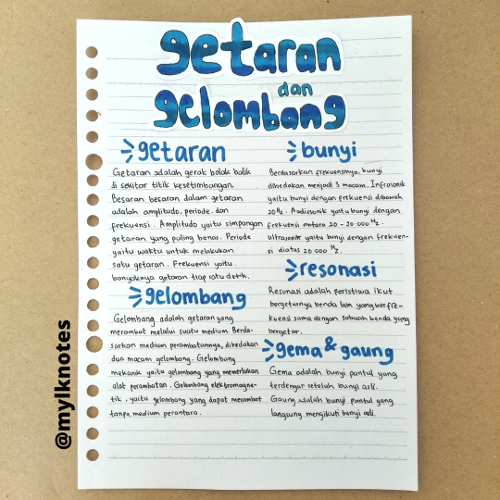 getaran
dan
gelombang
getaran
Getaran adalah gerak bolak balik
di sekitar titik kesetimbangan.
Besaran besaran dalam getaran
adalah amplitudo, periode, dan
frekuensi. Amplitudo yaitu simpangan
getaran yang paling besar. Periode
yaitu waktu untuk melakukan
satu getaran. Frekuensi yaitu
banyaknya getaran tiap satu detik.
gelombang
Gelombang adalah getaran yang
merambat melalui suatu medium. Berda-
sarkan medium perambatannya, dibedakan
dua macam gelombang. Gelombang
mekanik yaitu gelombang yang memerlukan
alat perambatan. Gelombang elektromagne-
tik, yaitu gelombang yang dapat merambat
tanpa medium perantara.
bunyi
Berdasarkan frekuensinya, bunyi
dibedakan menjadi 3 macam. Infrasonik
yaitu bunyi dengan frekuensi dibawah
20 Hz. Audiosonik yaitu bunyi dengan
frekuensi antara 20 - 20 000 Hz.
ultrasonik yaitu bunyi dengan frekuen-
si diatas 20 000 Hz.
resonasi
Resonasi adalah peristiwa ikut
bergetarnya benda lain yang berfre-
kuensi sama dengan sebuah benda yang
bergetar.
gema & gaung
Gema adalah bunyi pantul yang
terdengar setelah bunyi asli.
Gaung adalah bunyi pantul yang
langsung mengikuti bunyi asli.
@mylknotes